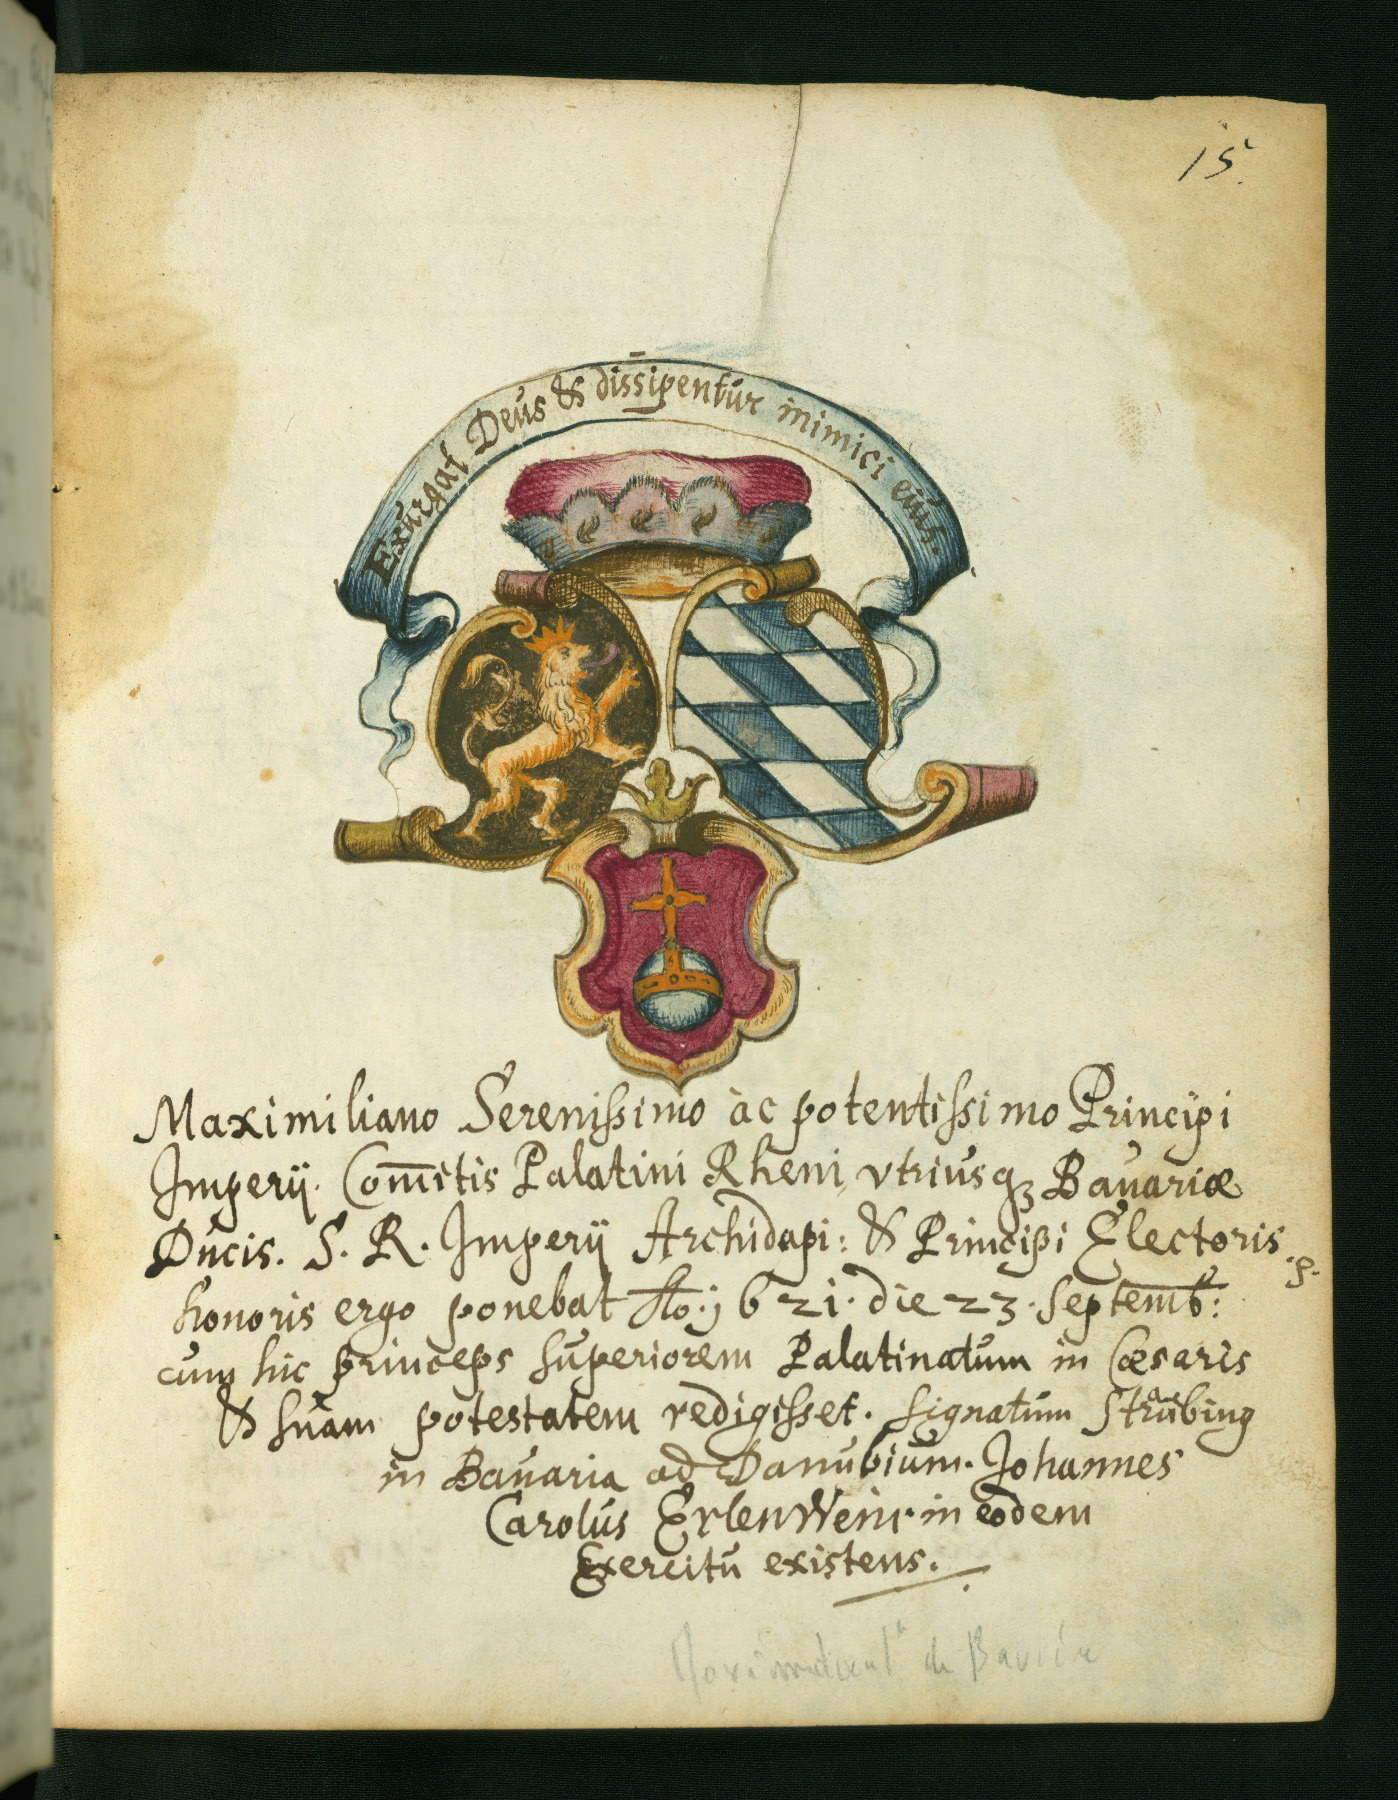 15.
Exurgat Deus & dissipentur inimici eius.
Maximiliano Serenissimo ac potentissimo Principi
Imperij. Com̅itis Palatini Rheni, vtriusqꝫ Bauariæ
Ducis. S. R. Imperij Archidapi: & Principi Electoris.
honoris ergo ponebat A̅o. j 6 21. die 23. Septemb̅:
cum hic princeps superiorem Palatinatum in Cæsaris
& suam potestatem redigisset. signatum Strubing
in Bauaria ad Danubium. Johannes
Carolus ErlenWein. in eodem
Exercitu existens.
de Bavière